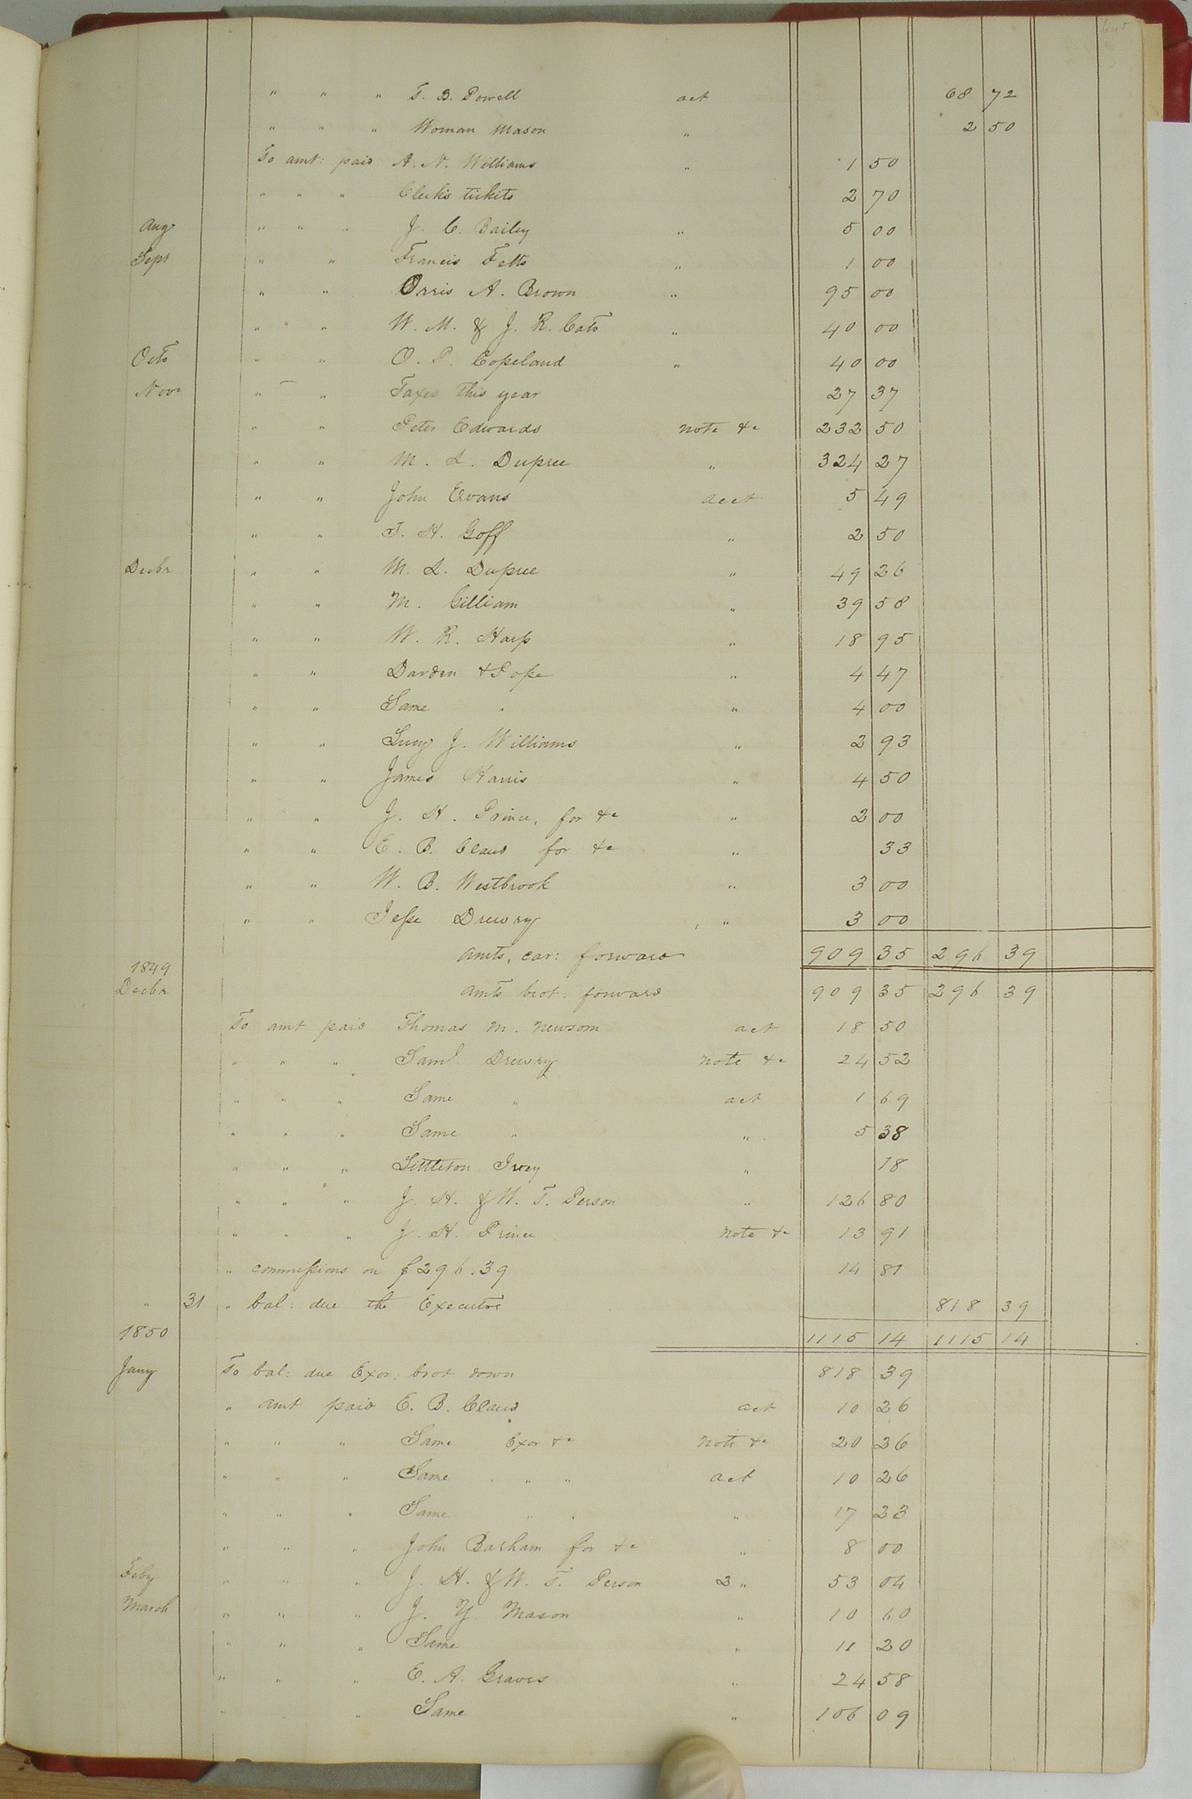 " " " T. B. Powell act 68 72
" " " Woman Mason " 2 50
To amt: paid A. N. Williams " 1 50
" " " Clerks tickets 2 70
Aug " " " J. C. Bailey " 5 00
Sept " " Francis Felts " 1 00
" " Orris A. Brown " 95 00
" " " W. M. & J. R. Cato " 40 00
Octo " " O. P. Copeland " 40 00
Novr " " Taxes this year 27 37
" " Peter Edwards note &c 232 50
" " M. L. Dupree " 324 27
" " John Evans acct 5 49
" " T. H. Goff " 2 50
Decbr " " M. L. Dupree " 49 26
" " M. Gilliam " 39 58
" " W. R. Harp " 18 95
" " Darden & Pope " 4 47
" " Same " " 4 00
" " Lucy J. Williams " 2 93
" " James Harris " 4 50
" " J. H. Prince, for &c " 2 00
" " E. B. Claud for &c " 33
" " W. B. Westbrook " 3 00
" " Jesse Drewry " 3 00
amts, car: forward 909 35 296 39
1849
Decbr amts brot forward 909 35 296 39
To amt paid Thomas M. Newsom act 18 50
" " " Saml Drewry note &c 24 52
" " " Same " act 1 69
" " " Same " " 5 38
" " " Littleton Ivey " 18
" " " J. H. & W. T. Person " 126 80
" " " J. H. Prince note &c 13 91
" commissions on $296.39 14 81
" 31 " bal: due the Executor 818 39
1850 1115 14 1115 14
Jany To bal: due Exor: brot down 818 39
" amt paid E. B. Claud act 10 26
" " " Same Exor &c note &c 20 36
" " " Same " " act 10 26
" " " Same " " " 17 23
" " " John Barham for &c " 8 00
Feby " " " J. H. & W. T. Person 2 " 53 04
March " " " J. Y. Mason " 10 60
" " " Same " 11 20
" " " E. A. Graves " 24 58
" " " Same " 106 09